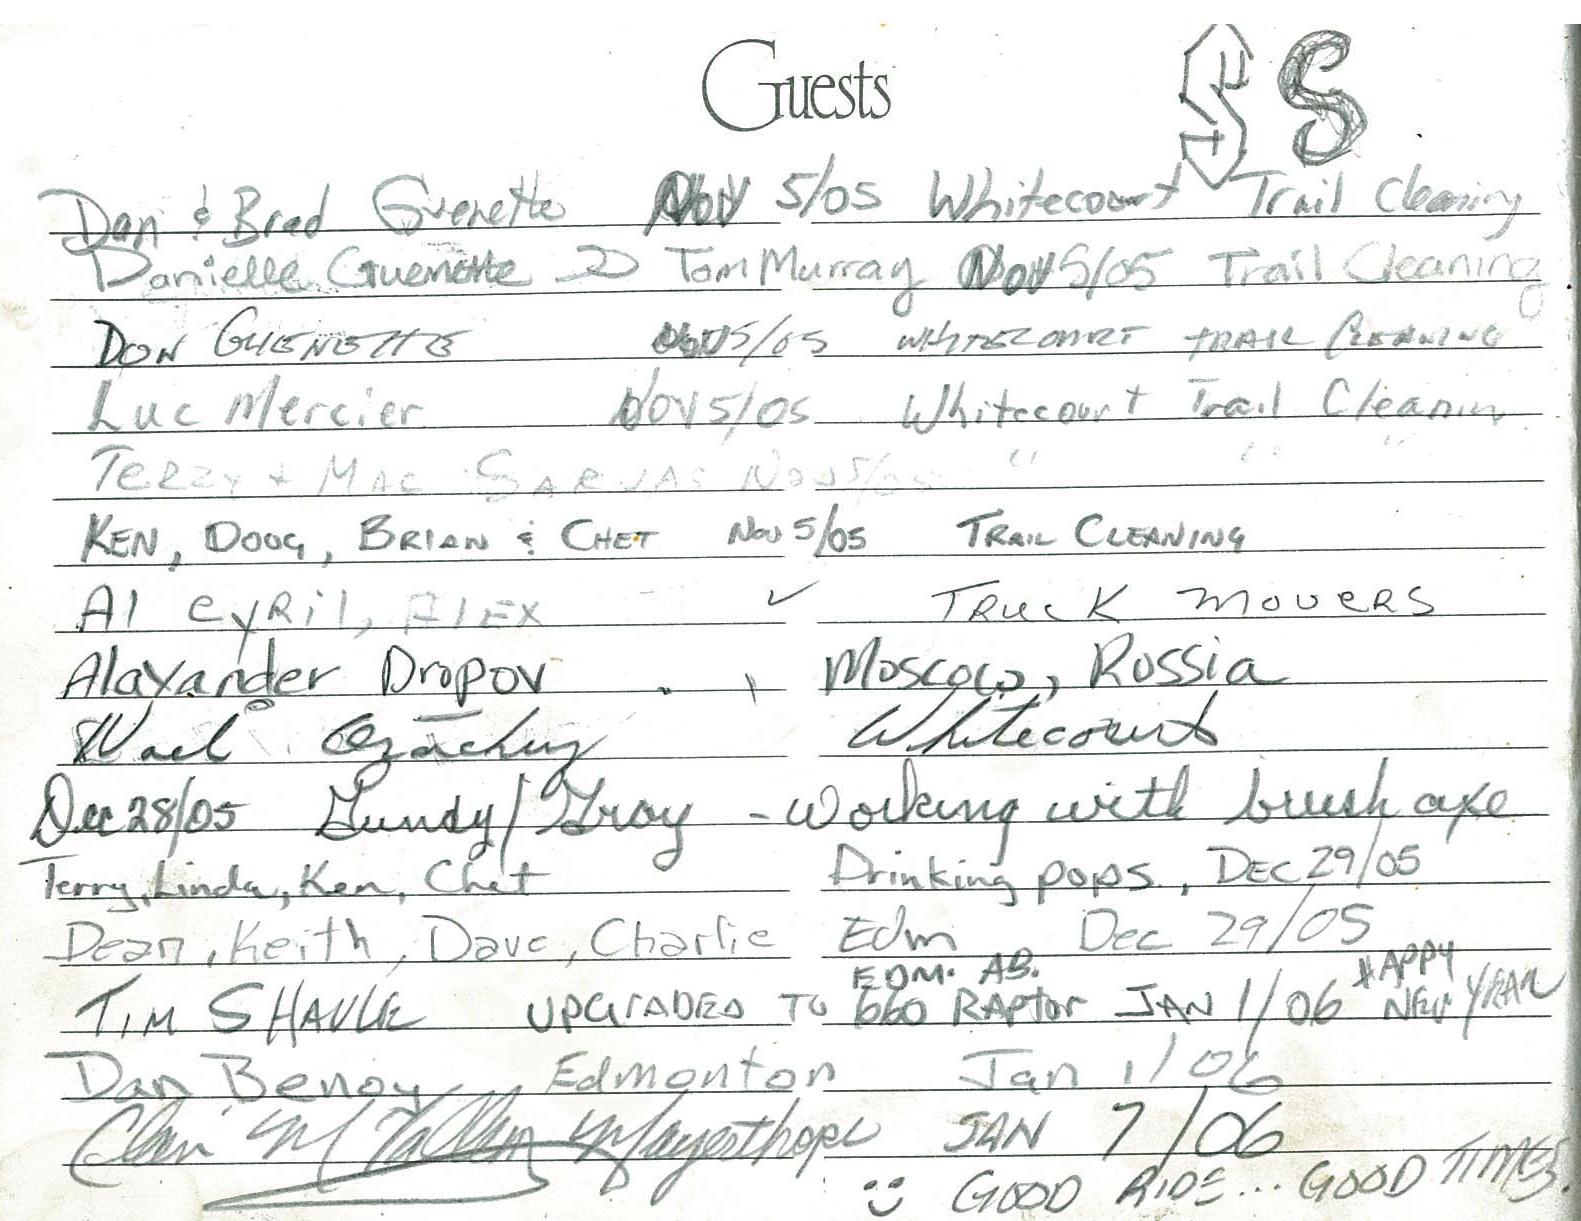 Guests
S S
Dan & Brad Guenette Nov 5/05 Whitecourt Trail Cleaning
Danielle Guenette Tom Murray Nov 5/05 Trail Cleaning
DON GUENETTE Nov 5/05 WHITECOURT TRAIL CLEANING
Luc Mercier Nov 5/05 Whitecourt Trail Cleanin
TERRY + MAC Nov 5/05 " " "
KEN, DOUG, BRIAN & CHET Nov 5/05 TRAIL CLEANING
Al CYRil, AlEX ✓ TRUCK MOVERS
Alaxander Dropov Moscow, Russia
Whitecourt
Dec 28/05 Gundy/Gray - Working with brush axe
Terry, Linda, Ken, Chet Drinking pops, DEC 29/05
Dean, Keith, Dave, Charlie Edm Dec 29/05
EDM. AB. HAPPY
TIM UPGRADED TO 660 RAPTOR JAN 1/06 NEW YEAR
Dan Benoy Edmonton Jan 1/06
Mayerthorpe JAN 7/06
GOOD RIDE... GOOD TIMES.